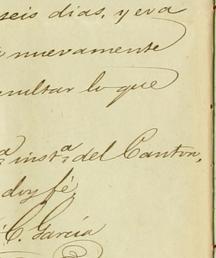 seis dias, y eva
nuevamente
sultar lo que
inst.ª del Canton,
doy fé
C. García